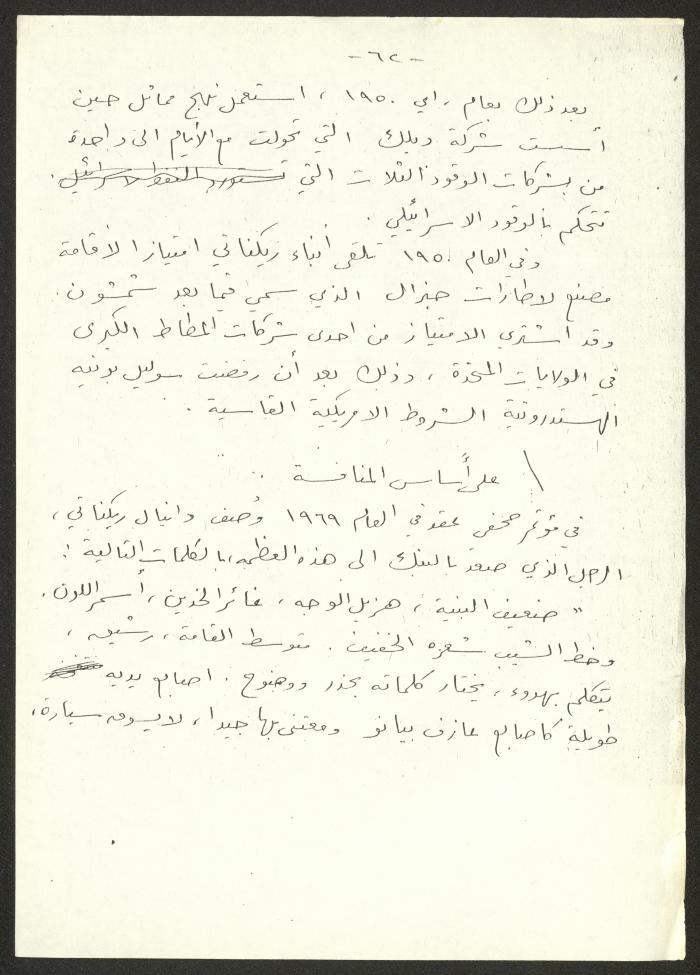 -٦٢-
بعد ذلك بعام ، اي ١٩٥٠ ، استعمل نهج مماثل حين
أسست شركة ديلك التي تحولت مع الأيام الى واحدة
من بشركات الوقود الثلاث التي تستورد النفط لاسرائيل .
تتحكم بالوقود الاسرائيلي .
وفي العام ١٩٥٠ تلقى أبناء ريكناتي امتيازا لاقامة
مصنع لاطارات جنرال الذي سمي فيما بعد شمشون .
وقد اشتري الامتياز من احدى شركات المطاط الكبرى
في الولايات المتحدة ، وذلك بعد أن رفضت سوليل بونيه
الهستدروتية الشروط الامريكية القاسية .
على أساس المنافسة ..
في مؤتمر صحفي عقد في العام ١٩٦٩ وُصف دانيال ريكناتي ،
الرجل الذي صعد بالبنك الى هذه العظمه ، بالكلمات التالية :
" ضعيف البنية ، هزيل الوجه ، غائر الخدين ، أسمر اللون .
وخط الشيب شعره الخفيف . متوسط القامة ، رشيق ،
يتكلم بهدوء ، يختار كلماته بحذر ووضوح . اصابع يديه
طويلة كاصابع عازف بيانو ومعتنى بها جيدا ، لا يسوق سيارة ،